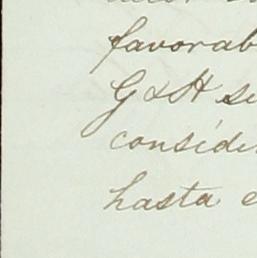 favorab
G & H se
conside
hasta e